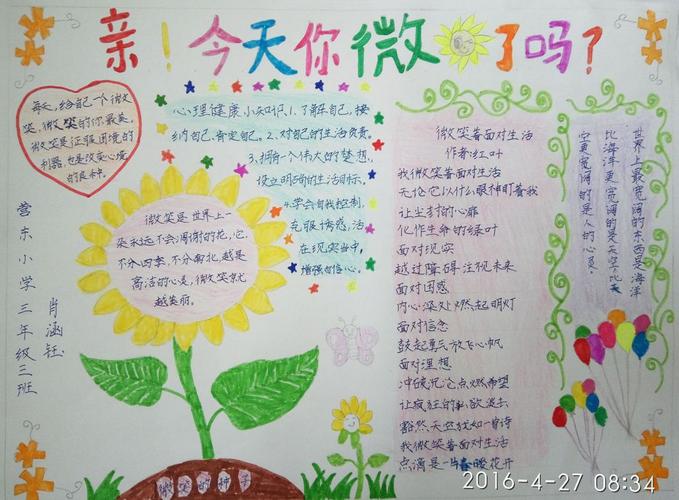 亲！今天你微了吗？
每天，给自己一个微
笑，微笑的你最美，
微笑是征服困境的
利器，也是改变心境
的良种。
心理健康小知识1.了解自己，接
纳自己，肯定自己。2.对自己的生活负责。
3.拥有一个伟大的梦想，
设立明确的生活目标。
4.学会自我控制，
克服诱惑，活
在现实当中，
增强自信心。
微笑是世界上一
朵永远不会凋谢的花，它
不分四季，不分南北，越是
高洁的心灵，微笑就
越美丽。
营东小学三年级三班
肖涵钰
微笑的种子
微笑着面对生活
作者：红叶
我微笑着面对生活
无论它以什么眼神盯着我
让尘封的心扉
化作生命的绿叶
面对现实
越过障碍注视未来
面对困惑
内心深处燃起明灯
面对信念
鼓起勇气放飞心帆
面对理想
冲破沉沦点燃希望
让疯狂的私欲逝去
豁然天空犹如一首诗
我微笑着面对生活
点滴是一片春暖花开
世界上最宽阔的东西是海洋
比海洋更宽阔的是天空，比天
空更宽阔的是人的心灵。
2016-4-27 08:34